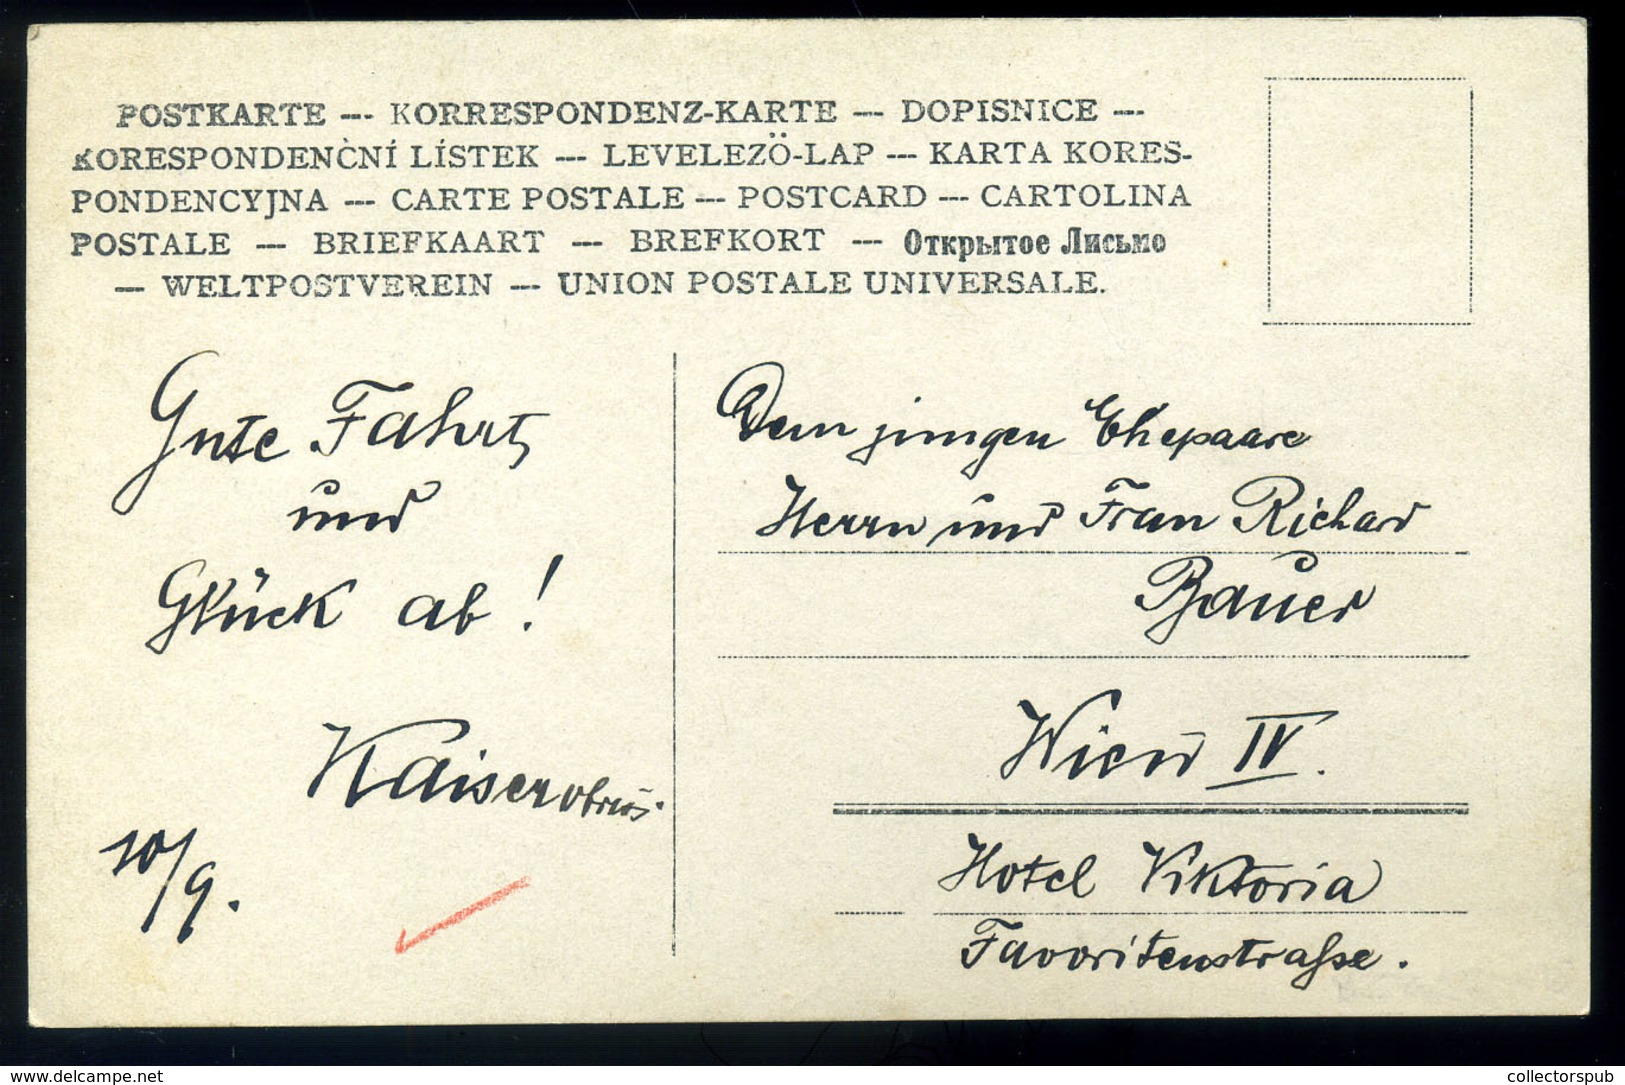 POSTKARTE --- KORRESPONDENZ-KARTE --- DOPISNICE ---
KORESPONDENČNÍ LÍSTEK --- LEVELEZÖ-LAP --- KARTA KORES-
PONDENCYJNA --- CARTE POSTALE --- POSTCARD --- CARTOLINA
POSTALE --- BRIEFKAART --- BREFKORT --- Открытое Лисьмо
--- WELTPOSTVEREIN --- UNION POSTALE UNIVERSALE.
Gute Fahrt
und
Glück ab!
10/9.
Dem jungen Ehepaare
Herrn und Frau Richard
Bauer
Wien IV.
Hotel Viktoria
Favoritenstraße.
www.delcampe.net
collectorspub